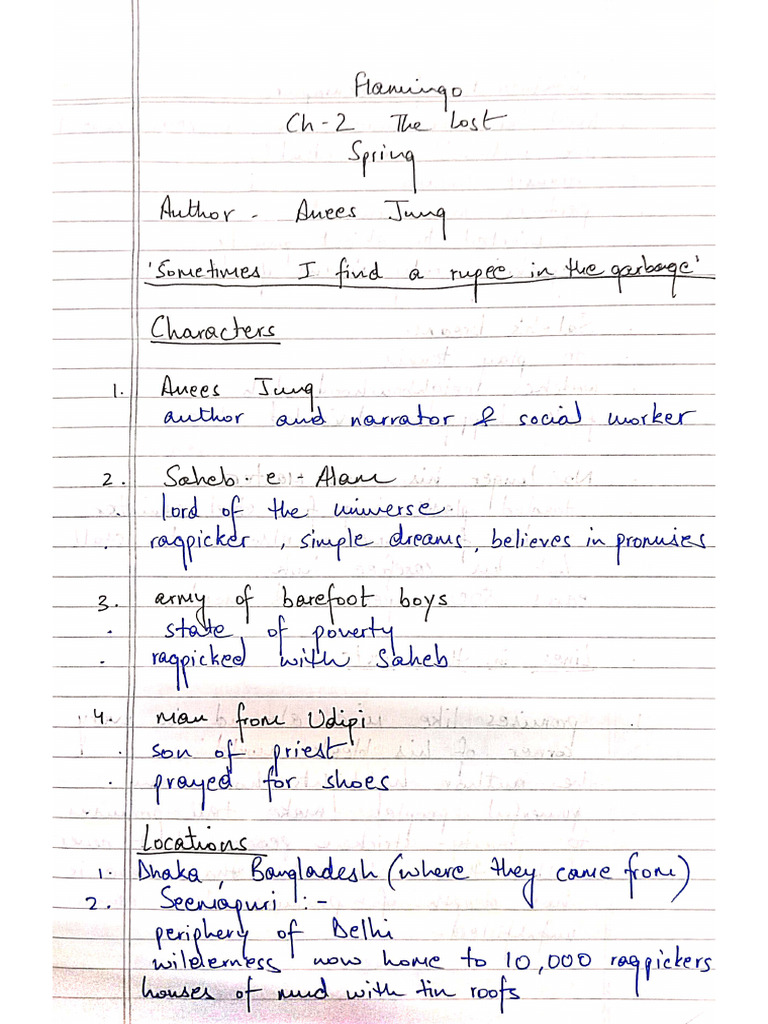 Flamingo
Ch-2 The Lost
Spring
Author - Anees Jung
'Sometimes I find a rupee in the garbage'
Characters
1. Anees Jung
author and narrator & social worker
2. Saheb-e-Alam
. lord of the universe.
. ragpicker, simple dreams, believes in promises
3. army of barefoot boys
. state of poverty
. ragpicked with Saheb
4. man from Udipi
. son of priest
. prayed for shoes
Locations
1. Dhaka, Bangladesh (where they came from)
2. Seemapuri :-
periphery of Delhi
wilderness now home to 10,000 ragpickers
houses of mud with tin roofs